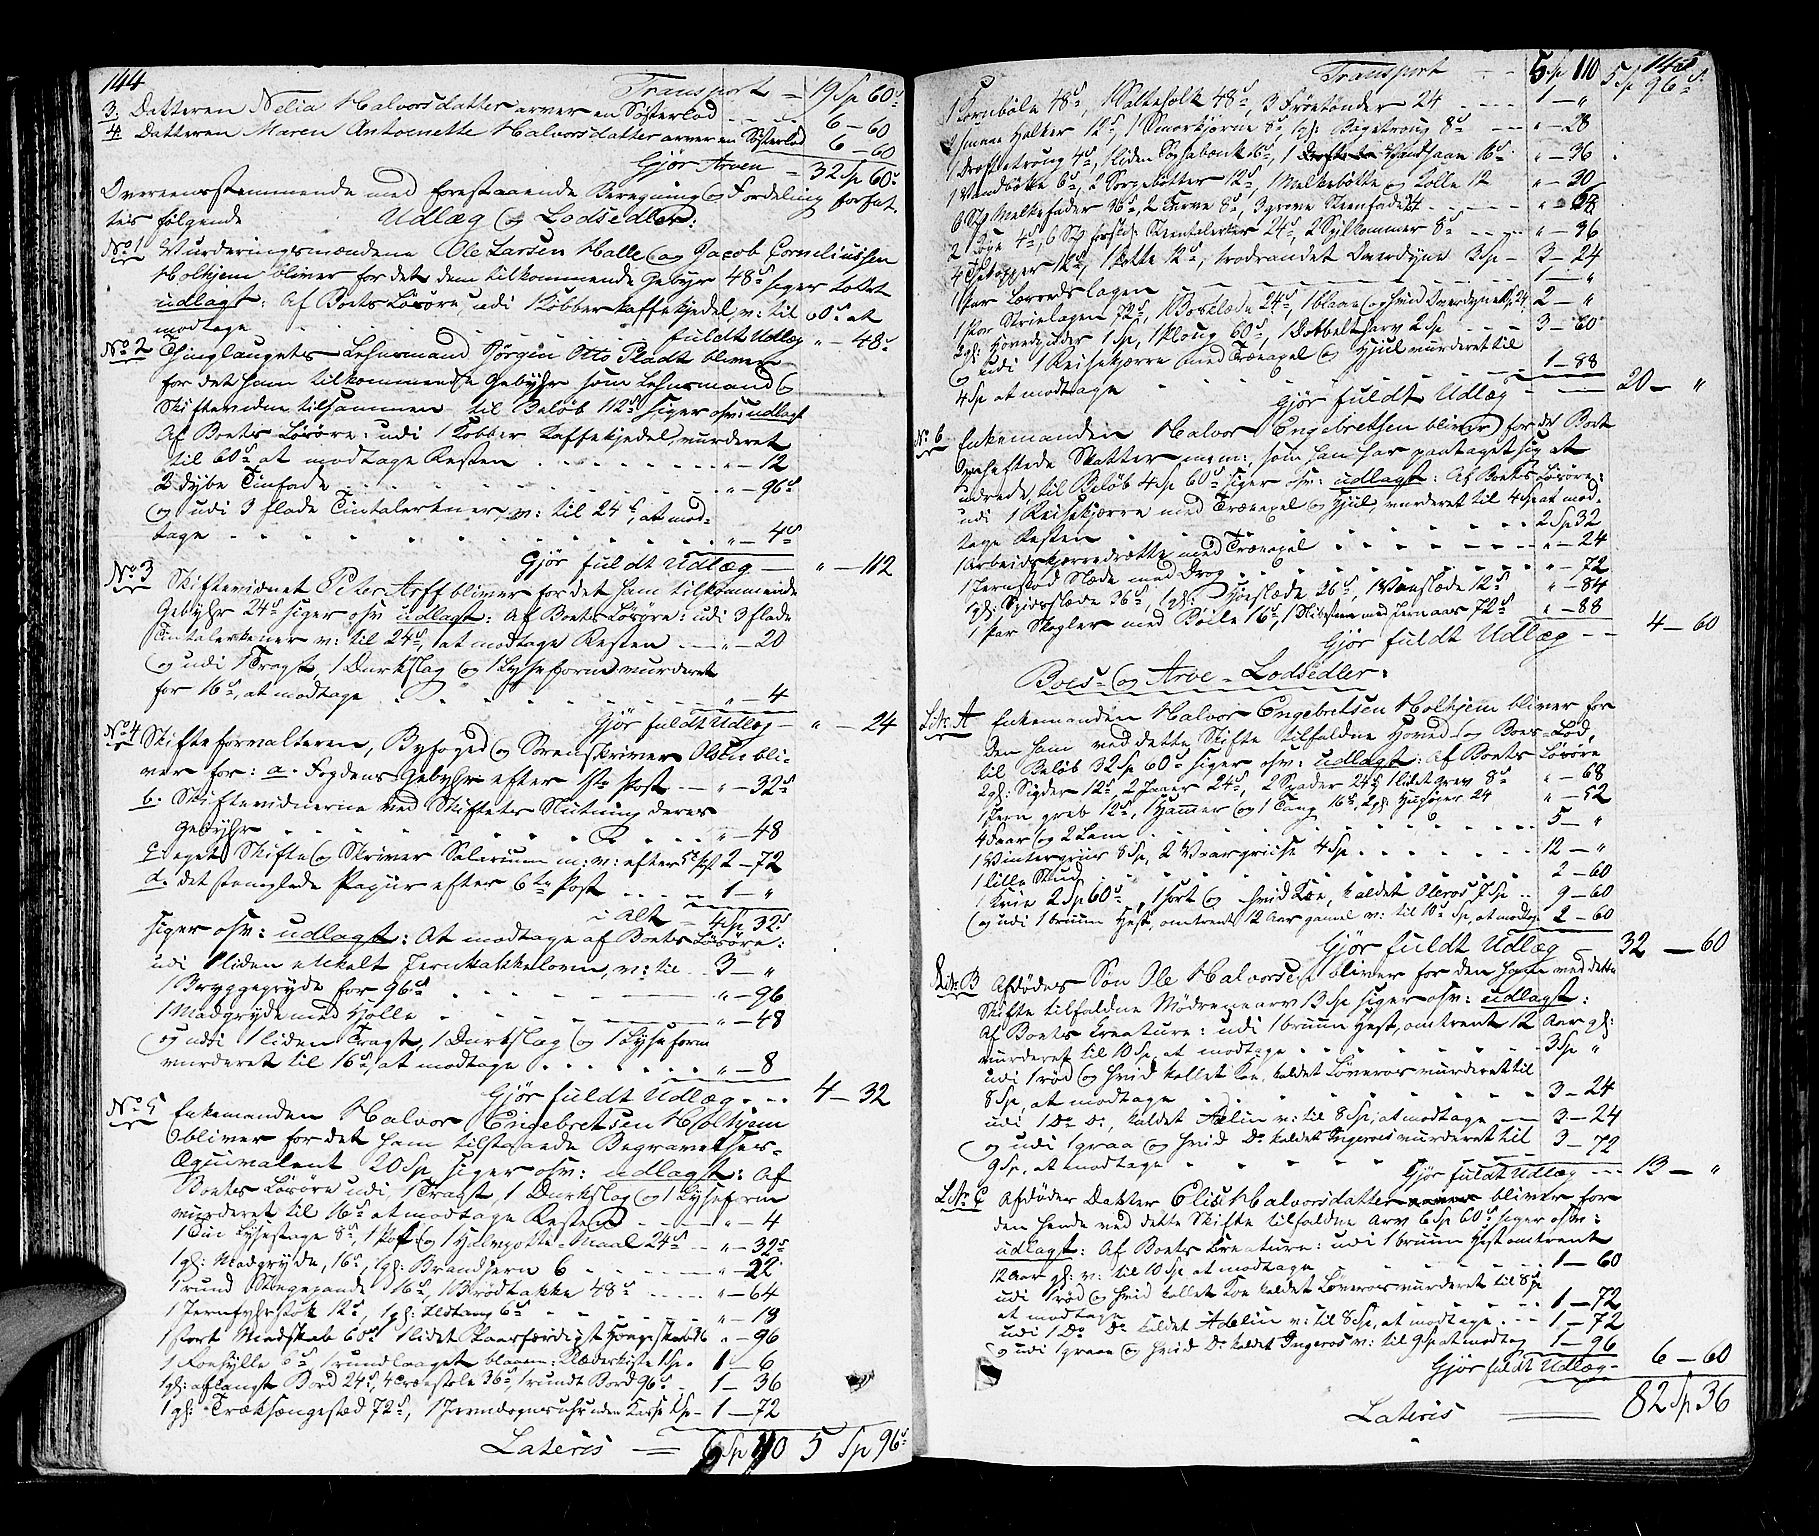 144
Transport — 19 Sp 60 s
3. Datteren Nelia Halvorsdatter arver en Søsterlod ... 6 — 60
4. Datteren Maren Antoinette Halvorsdatter arver en Søsterlod 6 — 60
Gjør Arven — 32 Sp 60 s
Overeensstemmende med forestaaende Beregning og Fordeling forfat-
tes følgende Udlæg og Lodsedler:
No 1 Vurderingsmændene Ole Larsen Halle og Jacob Corneliussen
Holtjem bliver for det dem tilkommende Gebyr 48 s siger
udlagt: Af Boets Løsøre, udi 1 Kobber Kaffekjedel, v: til 60 s at
modtage fuldt Udlæg " — 48 s
No 2 Thinglaugets Lehnsmand Jørgen Otto Pladt bliver
for det ham tilkommende Gebyhr som Lehnsmand og
Skiftevidne tilsammen til Beløb 112 s siger osv: udlagt
Af Boets Løsøre: udi 1 Kobber Kaffekjedel, vurderet
til 60 s at modtage Resten " — 12
2 dybe Tinfade " — 96 s
og udi 3 flade Tintalerkner, v: til 24 s, at mod-
tage " — 4 s
Gjør fuldt Udlæg — " — 112
No 3 Skiftevidnet Peter Arff bliver for det ham tilkommende
Gebyhr 24 s siger osv udlagt: Af Boets Løsøre: udi 3 flade
Tintalerkener v: til 24 s, at modtage Resten " — 20
og udi 1 Tragt, 1 Durkslag og 1 Lyseform vurderet
for 16 s, at modtage " — 4
Gjør fuldt Udlæg — " — 24
No 4 Skifteforvalteren, Byfoged og Sorenskriver Olsen bli-
ver for: a. Fogdens Gebyhr efter 1te Post " — 32 s
b. Skiftevidnerne ved Skiftets Slutning deres
Gebyhr " — 48
c. eget Skifte og Skriver Salarium m: v: efter 5te Post 2 — 72
d. det stemplede Papiir efter 6te Post 1 — "
i Alt — 4 Sp 32 s
siger osv: udlagt: At modtage af Boets Løsøre:
udi 1 liden enkelt Jernkakkelovn, v: til 3 — "
1 Bryggegryde for 96 s " — 96
1 Madgryde med Hølle " — 48
og udi 1 liden Tragt, 1 Durkslag og 1 Lyseform
vurderet til 16 s, at modtage " — 8
Gjør fuldt Udlæg 4 — 32
No 5 Enkemanden Halvor Engebretsen Holtjem
bliver for det ham tilstaaede Begravelses-
Æquivalent 20 Sp, siger osv: udlagt: Af
Boets Løsøre udi 1 Tragt, 1 Durkslag og 1 Lyseform
vurderet til 16 s at modtage Resten " — 4
1 Tin Lysestage 8 s, 1 Pot og 1 Halvpotte-Maal 24 s " — 32 s
1 gl: Madgryde, 16 s, 1 gl: Brandjern 6 " — 22
1 rund Stegepande 16 s, 1 Brødtakke 48 s " — 64
1 Jernfyhrstok 12 s, 1 gl: Ildtang 6 s " — 18
1 stort Madskab 60 s 1 lidet Hængeskab 36 " — 96
1 Kornhylle 6 s 1 rundlaaget blaam: Klædekiste 1 Sp 1 — 6
1 gl: aflangt Bord 24 s, 4 Træstole 36 s, 1 rundt Bord 96 s 1 — 36
1 gl: Træksængested 72 s, 1 Jerndognsuhr uden Kasse 1 Sp 1 — 72
Lateris — 5 Sp 96 s
145
Transport 5 Sp 110 5 Sp 96 s
1 Kornbøle 48 s, 1 Salteholk 48 s, 3 Frøetønder 24 1 — "
2 smaae Holker 12 s, 1 Smørkjerne 8 s, 1 gl: Bagetroug 8 s " — 28
1 Drøftetroug 4 s, 1 liden Høvlebænk 16 s, 1 Haandsaug 16 s " — 36
1 Vandbøtte 6 s, 2 Sørpebøtter 12 s, 1 Melkebøtte og Kolle 12 " — 30
6 Stk Melkefader 36 s, 2 Kurve 8 s, 3 grove Steenfade 24 " — 68
4 s, 6 Stk forskj: Steentalerker 24 s, 2 Syltkommer 8 s " — 36
12 s, 1 Potte 12 s, trodrandet Overdyne 3 Sp 3 — 24
1 Par Lærredslagen 1 — "
1 Par Strielagen 72 s, 1 24 s, 1 blaae og hvid Overdyne 2 — "
2 gl: Hovedputer 1 Sp, 1 Ploug 60 s, 1 Dobbelt Harv 2 Sp 3 — 60
og udi 1 Reisekjærre med Træaxel og Hjul vurderet til
4 Sp at modtage 1 — 88
Gjør fuldt Udlæg — 20 — "
No 6 Enkemanden Halvor Engebretsen bliver for de Boet
paaheftede Skatter m: m:, som han har paataget sig at
udrede, til Beløb 4 Sp 60 s siger osv: udlagt: Af Boets Løsøre:
udi 1 Reisekjærre med Træeaxel og Hjul, vurderet til 4 Sp at mod-
tage Resten 2 Sp 32
1 Arbeidskjærredrætte med Træeaxel " — 24
1 Jernskod Slæde med Drog " — 72
1 gl: Spidsslæde 36 s, 1 gl: Høeslæde 36 s, 1 Vedslæde 12 s " — 84
1 Par Skagler med Bøile 16 s, 1 Slibesteen med Jernaas 72 s " — 88
Gjør fuldt Udlæg — 4 — 60
Boes- og Arve-Lodsedler:
Litr: A Enkemanden Halvor Engebretsen Holtjem bliver for
den ham ved dette Skifte tilfaldne Hoved- og Boes-Lod,
til Beløb 32 Sp 60 s siger osv: udlagt: Af Boets Løsøre
2 gl: Sigder 12 s, 2 Ljaaer 24 s, 2 Spader 24 s, 1 lidet grev 8 s " — 68
1 Jern greb 12 s, 1 Hamer og 1 Tang 16 s, 2 gl: Huhøxer 24 " — 52
4 Faar og 2 Lam 5 — "
1 Vintergriis 8 Sp, 2 Vaargriise 4 Sp 12 — "
1 lille Stud 2 — 60
1 Kvie 2 Sp 60 s, 1 sort og hvid Koe, kaldet Oleros 7 Sp 9 — 60
og udi 1 bruun Hest, omtrent 12 Aar gammel v: til 10 Sp, at modtage 2 — 60
Gjør fuldt Udlæg — 32 — 60
Litr: B Afdødes Søn Ole Halvorsen bliver for den ham ved dette
Skifte tilfaldne Mødrenearv 13 Sp siger osv: udlagt:
Af Boets Creature: udi 1 bruun Hest, omtrent 12 Aar gl:
vurderet til 10 Sp, at modtage 3 Sp "
udi 1 rød og hvid kollet Koe, kaldet Løveros vurderet til
8 Sp, at modtage 3 — 24
udi 1 Do Do, kaldet Adelin v: til 8 Sp, at modtage 3 — 24
og udi 1 graa og hvid Do kaldet Ingeros vurderet til
9 Sp, at modtage 3 — 72
Gjør fuldt Udlæg — 13 — "
Litr: C Afdødes Datter Elise Halvorsdatter bliver for
den hende ved dette Skifte tilfaldne Arv 6 Sp 60 s siger osv:
udlagt: Af Boets Creature: udi 1 bruun Hest omtrent
12 Aar gl: v: til 10 Sp at modtage 1 — 60
udi 1 rød og hvid kollet Koe kaldet Løveros vurderet til 8 Sp
at modtage 1 — 72
udi 1 Do Do kaldet Adelin v: til 8 Sp, at modtage 1 — 72
og udi 1 graae og hvid Do kaldet Ingeros v: til 9 Sp at modtag 1 — 96
Gjør fuldt Udlæg — 6 — 60
Lateris — 82 Sp 36